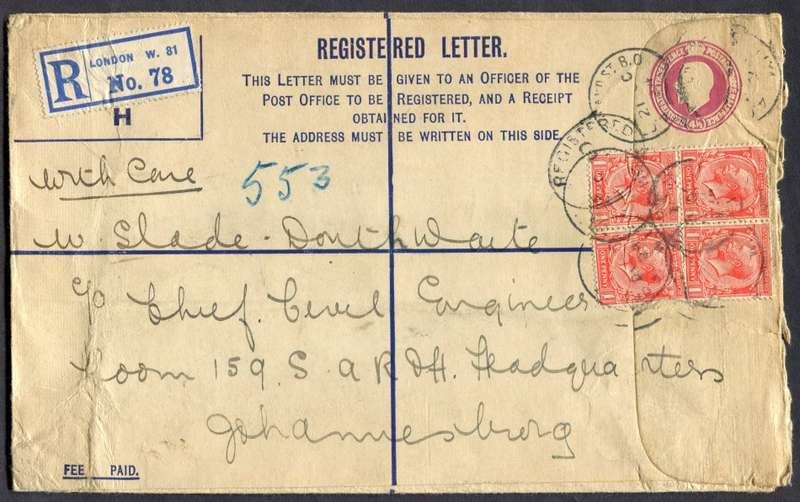 REGISTERED LETTER.
LONDON W. 81
R No. 78
H
THIS LETTER MUST BE GIVEN TO AN OFFICER OF THE
POST OFFICE TO BE REGISTERED, AND A RECEIPT
OBTAINED FOR IT.
THE ADDRESS MUST BE WRITTEN ON THIS SIDE.
REGISTERED
With Care
553
W. Slade-Douthwaite
c/o Chief. Civil Engineer
Room 159. S. A R. & H. Headquarters
Johannesburg
FEE PAID.